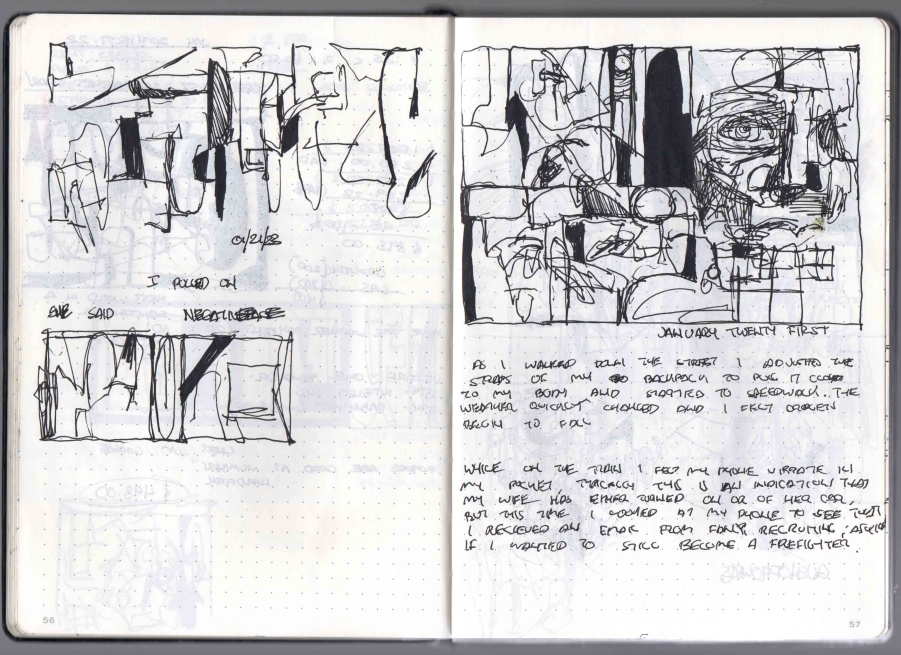 01/21/23
I ROLLED ON
SHE SAID NEGATIVESPACE
56
JANUARY TWENTY FIRST
AS I WALKED DOWN THE STREET I ADJUSTED THE
STRAPS OF MY BACKPACK TO PULL IT CLOSER
TO MY BODY AND STARTED TO SPEEDWALK. THE
WEATHER QUICKLY CHANGED AND I FELT
BEGIN TO FALL
WHILE ON THE TRAIN I FELT MY PHONE VIBRATE IN
MY POCKET, TYPICALLY THIS IS AN INDICATION THAT
MY WIFE HAS EITHER TURNED ON OR OF HER CAR,
BUT THIS TIME I LOOKED AT MY PHONE TO SEE THAT
I RECIEVED AN EMAIL FROM FDNY RECRUITING, ASKING
IF I WANTED TO STILL BECOME A FIREFIGHTER.
57